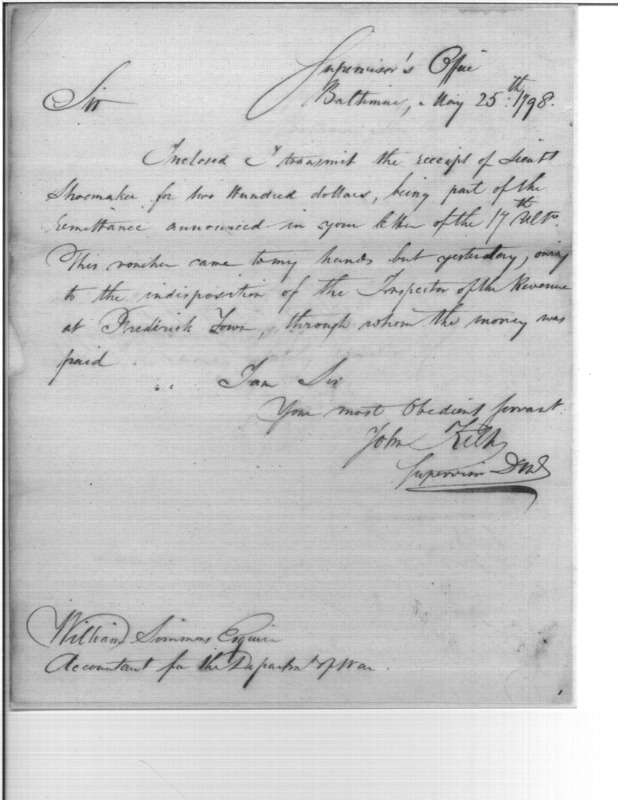 Supervisor's Office
Sir Baltimore, May 25th. 1798.
Inclosed I transmit the receipt of Lieutt
Shoemaker for two Hundred dollars, being part of the
remittance announced in your letter of the 17th Ulto.
This voucher came to my hands but yesterday, owing
to the indisposition of the Inspector of the Revenue
at Frederick Town, through whom the money was
paid.
I am Sir
Your most Obedient servant.
John Kilty
Supervisor
William Simmons Esquire
Accountant for the Departmt of War.